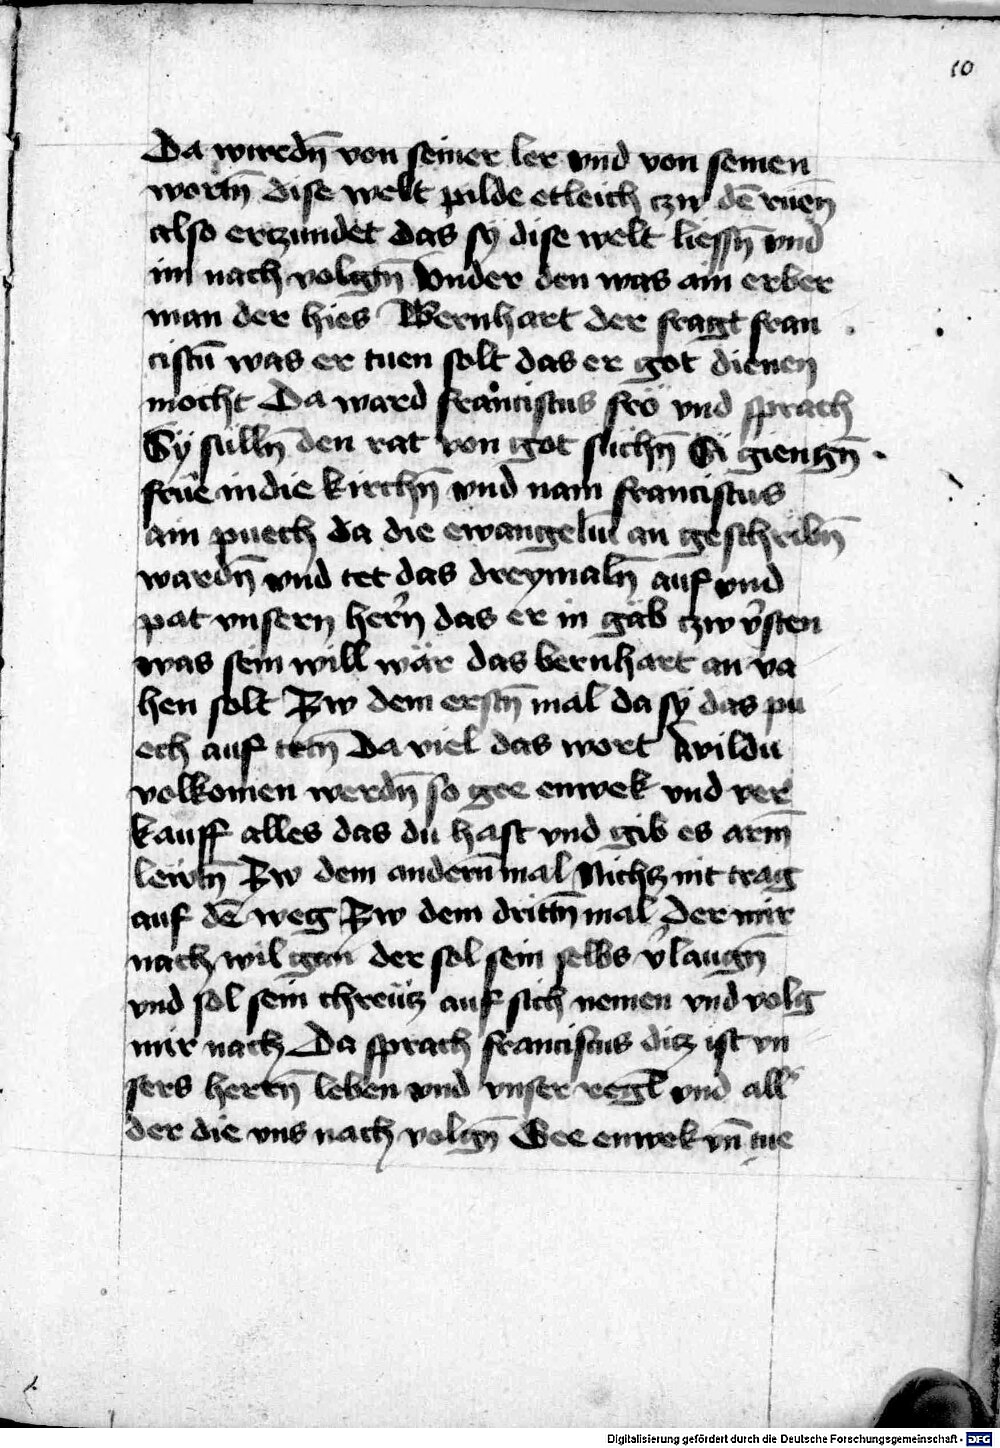 10
Da wurdn̄ von seiner ler vnd von seinen
wortn̄ dise welt pilde etleich czw dē ruen̄
also erczundet das sÿ dise welt liessn̄ vnd
im nach volgn̄ Vnder den was ain erber
man der hies Wernhart der fragt fran
ciscū was er tuen solt das er got dienen
mocht Da ward franciscus frö vnd sprach
Sÿ sülln̄ den rat von got suchn̄ Si giengn̄
frue in die kirchn̄ vnd nam franciscus
ain puech da die ewangeliū an geschribn̄
wardn̄ vnd tet das dreymaln̄ auf vnd
pat vnsern herrn das er in gäb czw v̓sten
was sein will wär das bernhart an va
hen solt Zw dem erstn̄ mal da sÿ das pu
ech auf tetn̄ Da viel das wort Wildu
volkomen werdn̄ so gee enwek vnd ver
kauff alles das du hast vnd gib es arm̄
lewtn̄ Zw dem andern̄ mal Nichcz nit trag
auf dē weg Zw dem drittn̄ mal Der mir
nach wil gan der sol sein selbs v̓laugn̄
vnd sol sein chreücz auf sich nemen vnd volg
mir nach Da sprach franciscus dicz ist vn
sers herrn̄ leben vnd vnser regl̄ vnd all̓
der die vns nach volgn̄ Gee enwek vn̄ tue
Digitalisierung gefördert durch die Deutsche Forschungsgemeinschaft - DFG